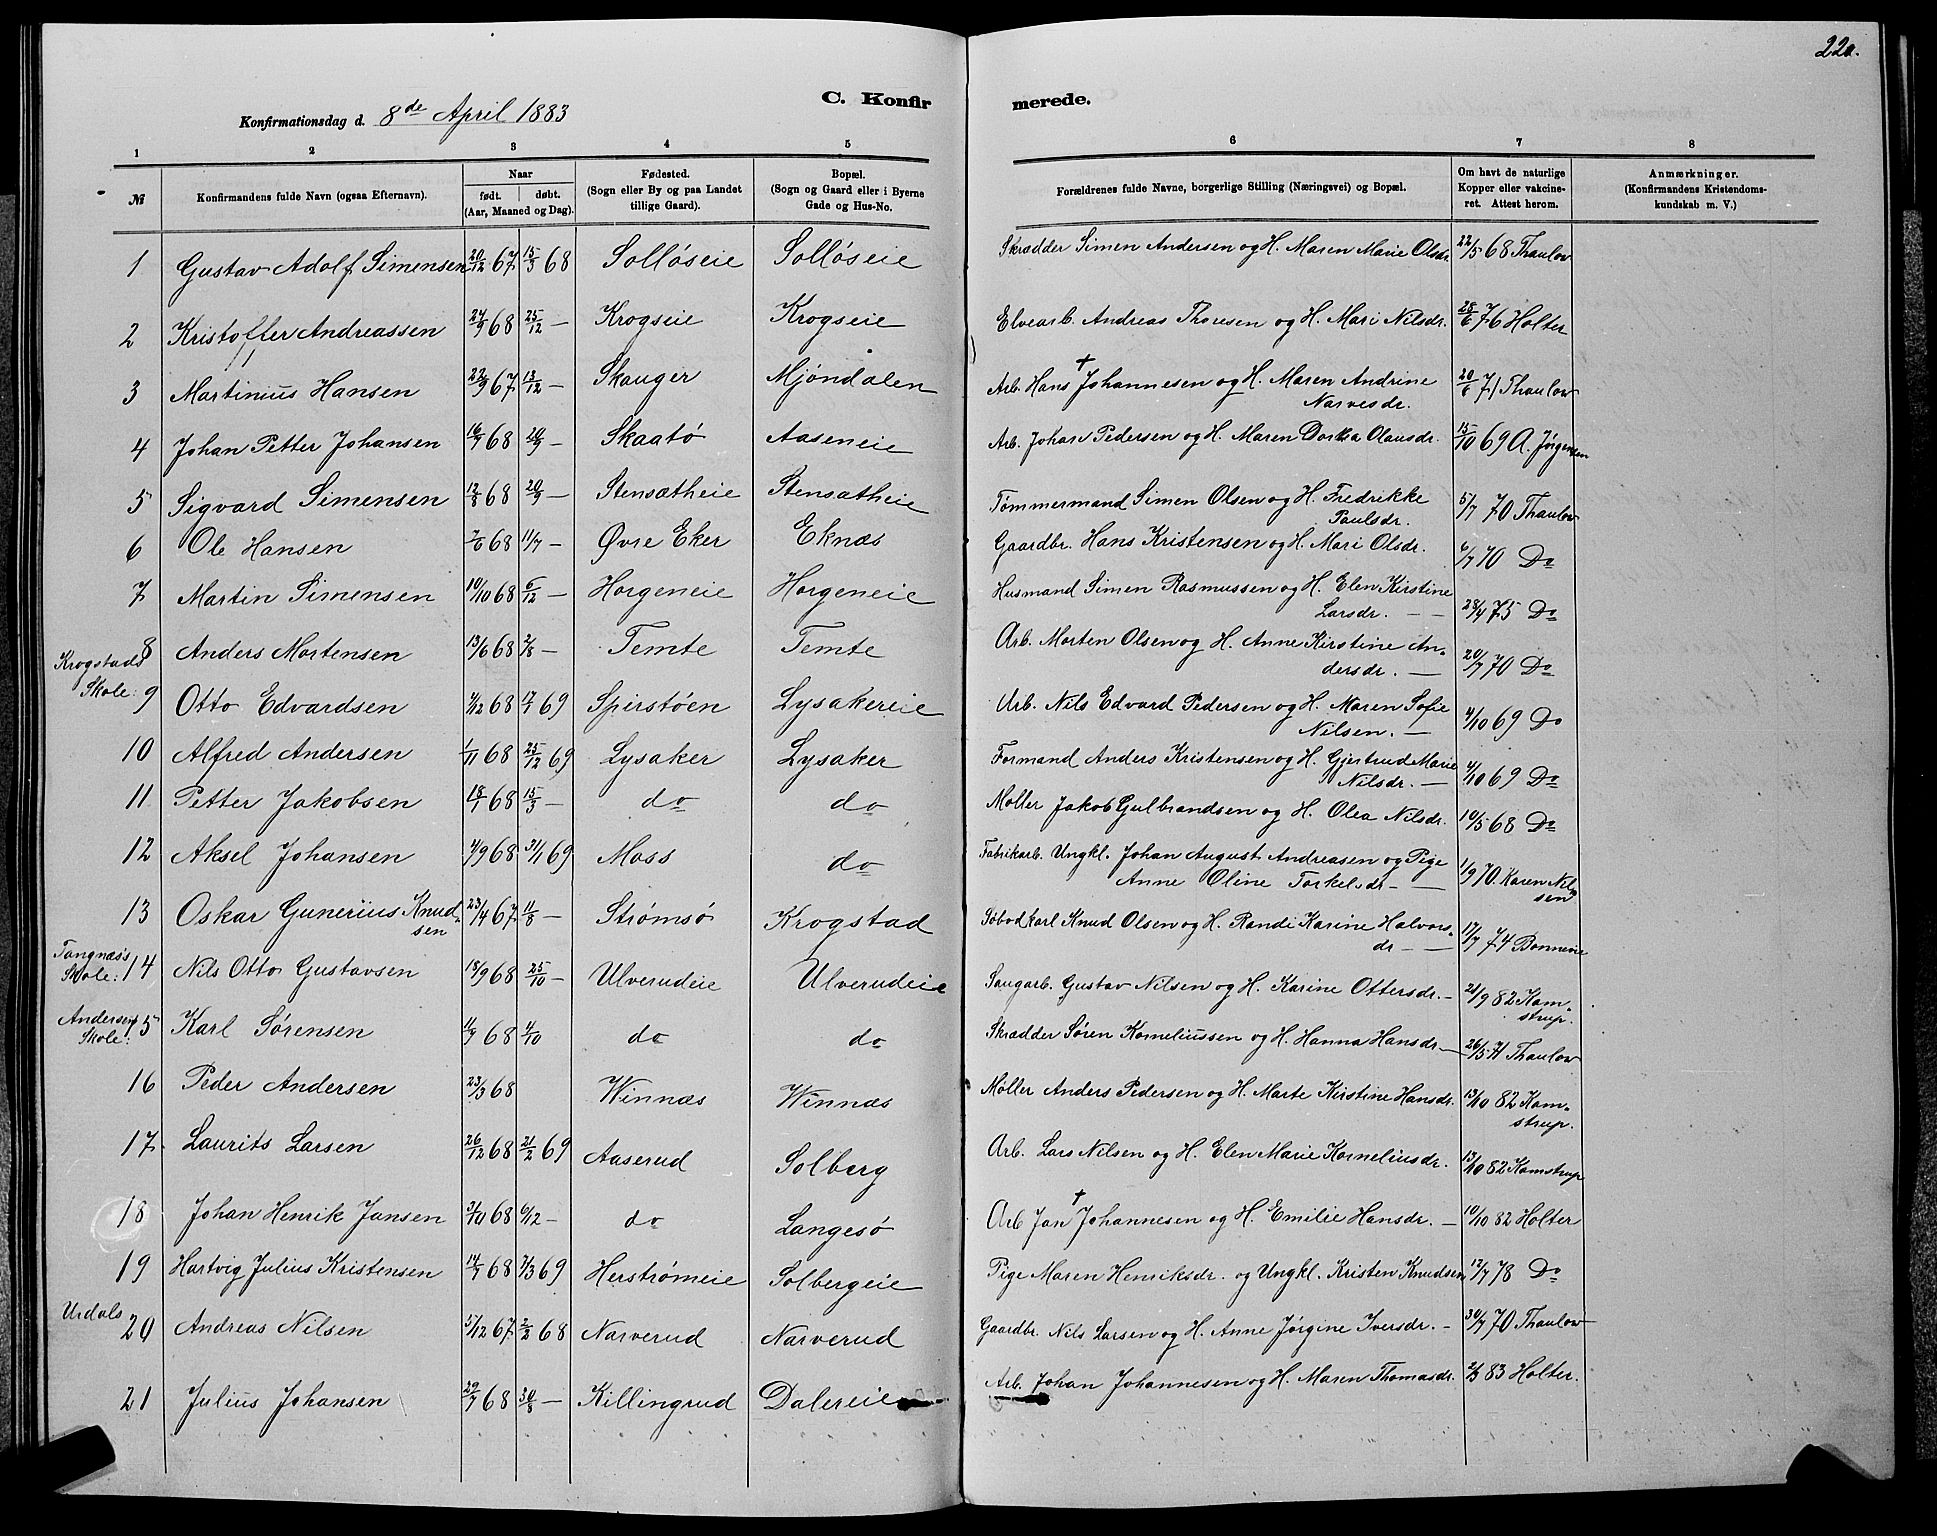 220.
C. Konfirmerede.
Konfirmationsdag d. 8de April 1883
1 2 3 4 5 6 7 8
№ Konfirmandens fulde Navn (ogsaa Efternavn). Naar født. døbt. (Aar, Maaned og Dag). Fødested. (Sogn eller By og paa Landet tillige Gaard). Bopæl. (Sogn og Gaard eller i Byerne Gade og Hus-No. Forældrenes fulde Navne, borgerlige Stilling (Næringsvei) og Bopæl. Om havt de naturlige Kopper eller vakcineret. Attest herom. Anmærkninger. (Konfirmandens Kristendomskundskab m. V.)
1 Gustav Adolf Simensen 20/12 67 15/3 68 Sollöseie Sollöseie Skrædder Simen Andersen og H. Maren Marie Olsdr. 22/5 68 Thaulow
2 Kristoffer Andreassen 24/9 68 25/12 — Krogseie Krogseie Elvearb. Andreas Thoresen og H. Mari Nilsdr. 28/6 76 Holter
3 Martinius Hansen 22/9 67 13/12 — Skauger Mjöndalen Arb. Hans † Johannesen og H. Maren Andrine
Narvesdr. 20/6 71 Thaulow
4 Johan Petter Johansen 16/7 68 20/9 — Skaatö Aaseneie Arb. Johan Pedersen og H. Maren Dorthea Olausdr. 15/10 69 A. Jörgensen
5 Sigvard Simensen 12/8 68 20/9 — Stensætheie Stensætheie Tömmermand Simen Olsen og H. Fredrikke
Paulsdr. 5/7 70 Thaulow
6 Ole Hansen 7/6 68 11/7 — Øvre Eker Eknæs Gaardbr. Hans Kristensen og H. Mari Olsdr. 6/7 70 Do
7 Martin Simensen 10/10 68 6/12 — Horgeneie Horgeneie Husmand Simen Rasmussen og H. Elen Kirstine
Larsdr. — — 28/4 75 Do
Krogstads
Skole:
8 Anders Mortensen 13/6 68 2/8 — Temte Temte Arb. Morten Olsen og H. Anne Kirstine An-
dersdr. — 20/7 70 Do
9 Otto Edvardsen 4/12 68 17/1 69 Spirstöen Lysakereie Arb. Nils Edvard Pedersen og H. Maren Sofie
Nilsen. — 4/10 69 Do
10 Alfred Andersen 1/11 68 25/12 69 Lysaker Lysaker Formand Anders Kristensen og H. Gjertrud Marie
Nilsdr. — 4/10 69 Do
11 Petter Jakobsen 18/1 68 15/3 — do do Möller Jakob Gulbrandsen og H. Olea Nilsdr. 10/5 68 Do
12 Aksel Johansen 4/9 68 31/1 69 Moss do Fabrikarb. Ungkl. Johan August Andreasen og Pige
Anne Oline Torkelsdr. — — 1/9 70. Karen Nilsen
13 Oskar Gunerius Knudsen 23/4 67 11/8 — Strömsö Krogstad Söbodkarl Knud Olsen og H. Randi Karine Halvors-
dr — — 17/7 74 Bonnevie
Tangnæs's
Skole:
14 Nils Otto Gustavsen 18/9 68 25/10 — Ulverudeie Ulverudeie Saugarb. Gustav Nilsen og H. Karine Ottersdr. — 21/9 82 Kam-
strup.
Andersens
Skole:
15 Karl Sörensen 11/9 68 4/10 do do Skrædder Sören Korneliussen og H. Hanna Hansdr — 26/5 71 Thaulow
16 Peder Andersen 23/3 68 Winnæs Winnæs Möller Anders Pedersen og H. Marte Kirstine Hansdr. 13/10 82 Kam-
strup.
17 Laurits Larsen 26/12 68 21/2 69 Aaserud Solberg Arb. Lars Nilsen og H. Elen Marie Korneliusdr. 13/10 82 Kamstrup
18 Johan Henrik Jansen 3/11 68 6/12 — do Langesö Arb Jan † Johannesen og H. Emilie Hansdr. — 10/10 82 Holter
19 Hartvig Julius Kristensen 14/7 68 7/3 69 Herströmeie Solbergeie Pige Maren Henriksdr. og Ungkl. Kristen Knudsen 12/7 78 Do
Urdals
20 Andreas Nilsen 5/12 67 2/2 68 Narverud Narverud Gaardbr. Nils Larsen og H. Anne Jörgine Iversdr. — 30/7 70 Thaulow
21 Julius Johansen 29/7 68 30/8 — Killingrud Dalereie Arb. Johan Johannesen og H. Maren Thomasdr. 2/3 83 Holter.